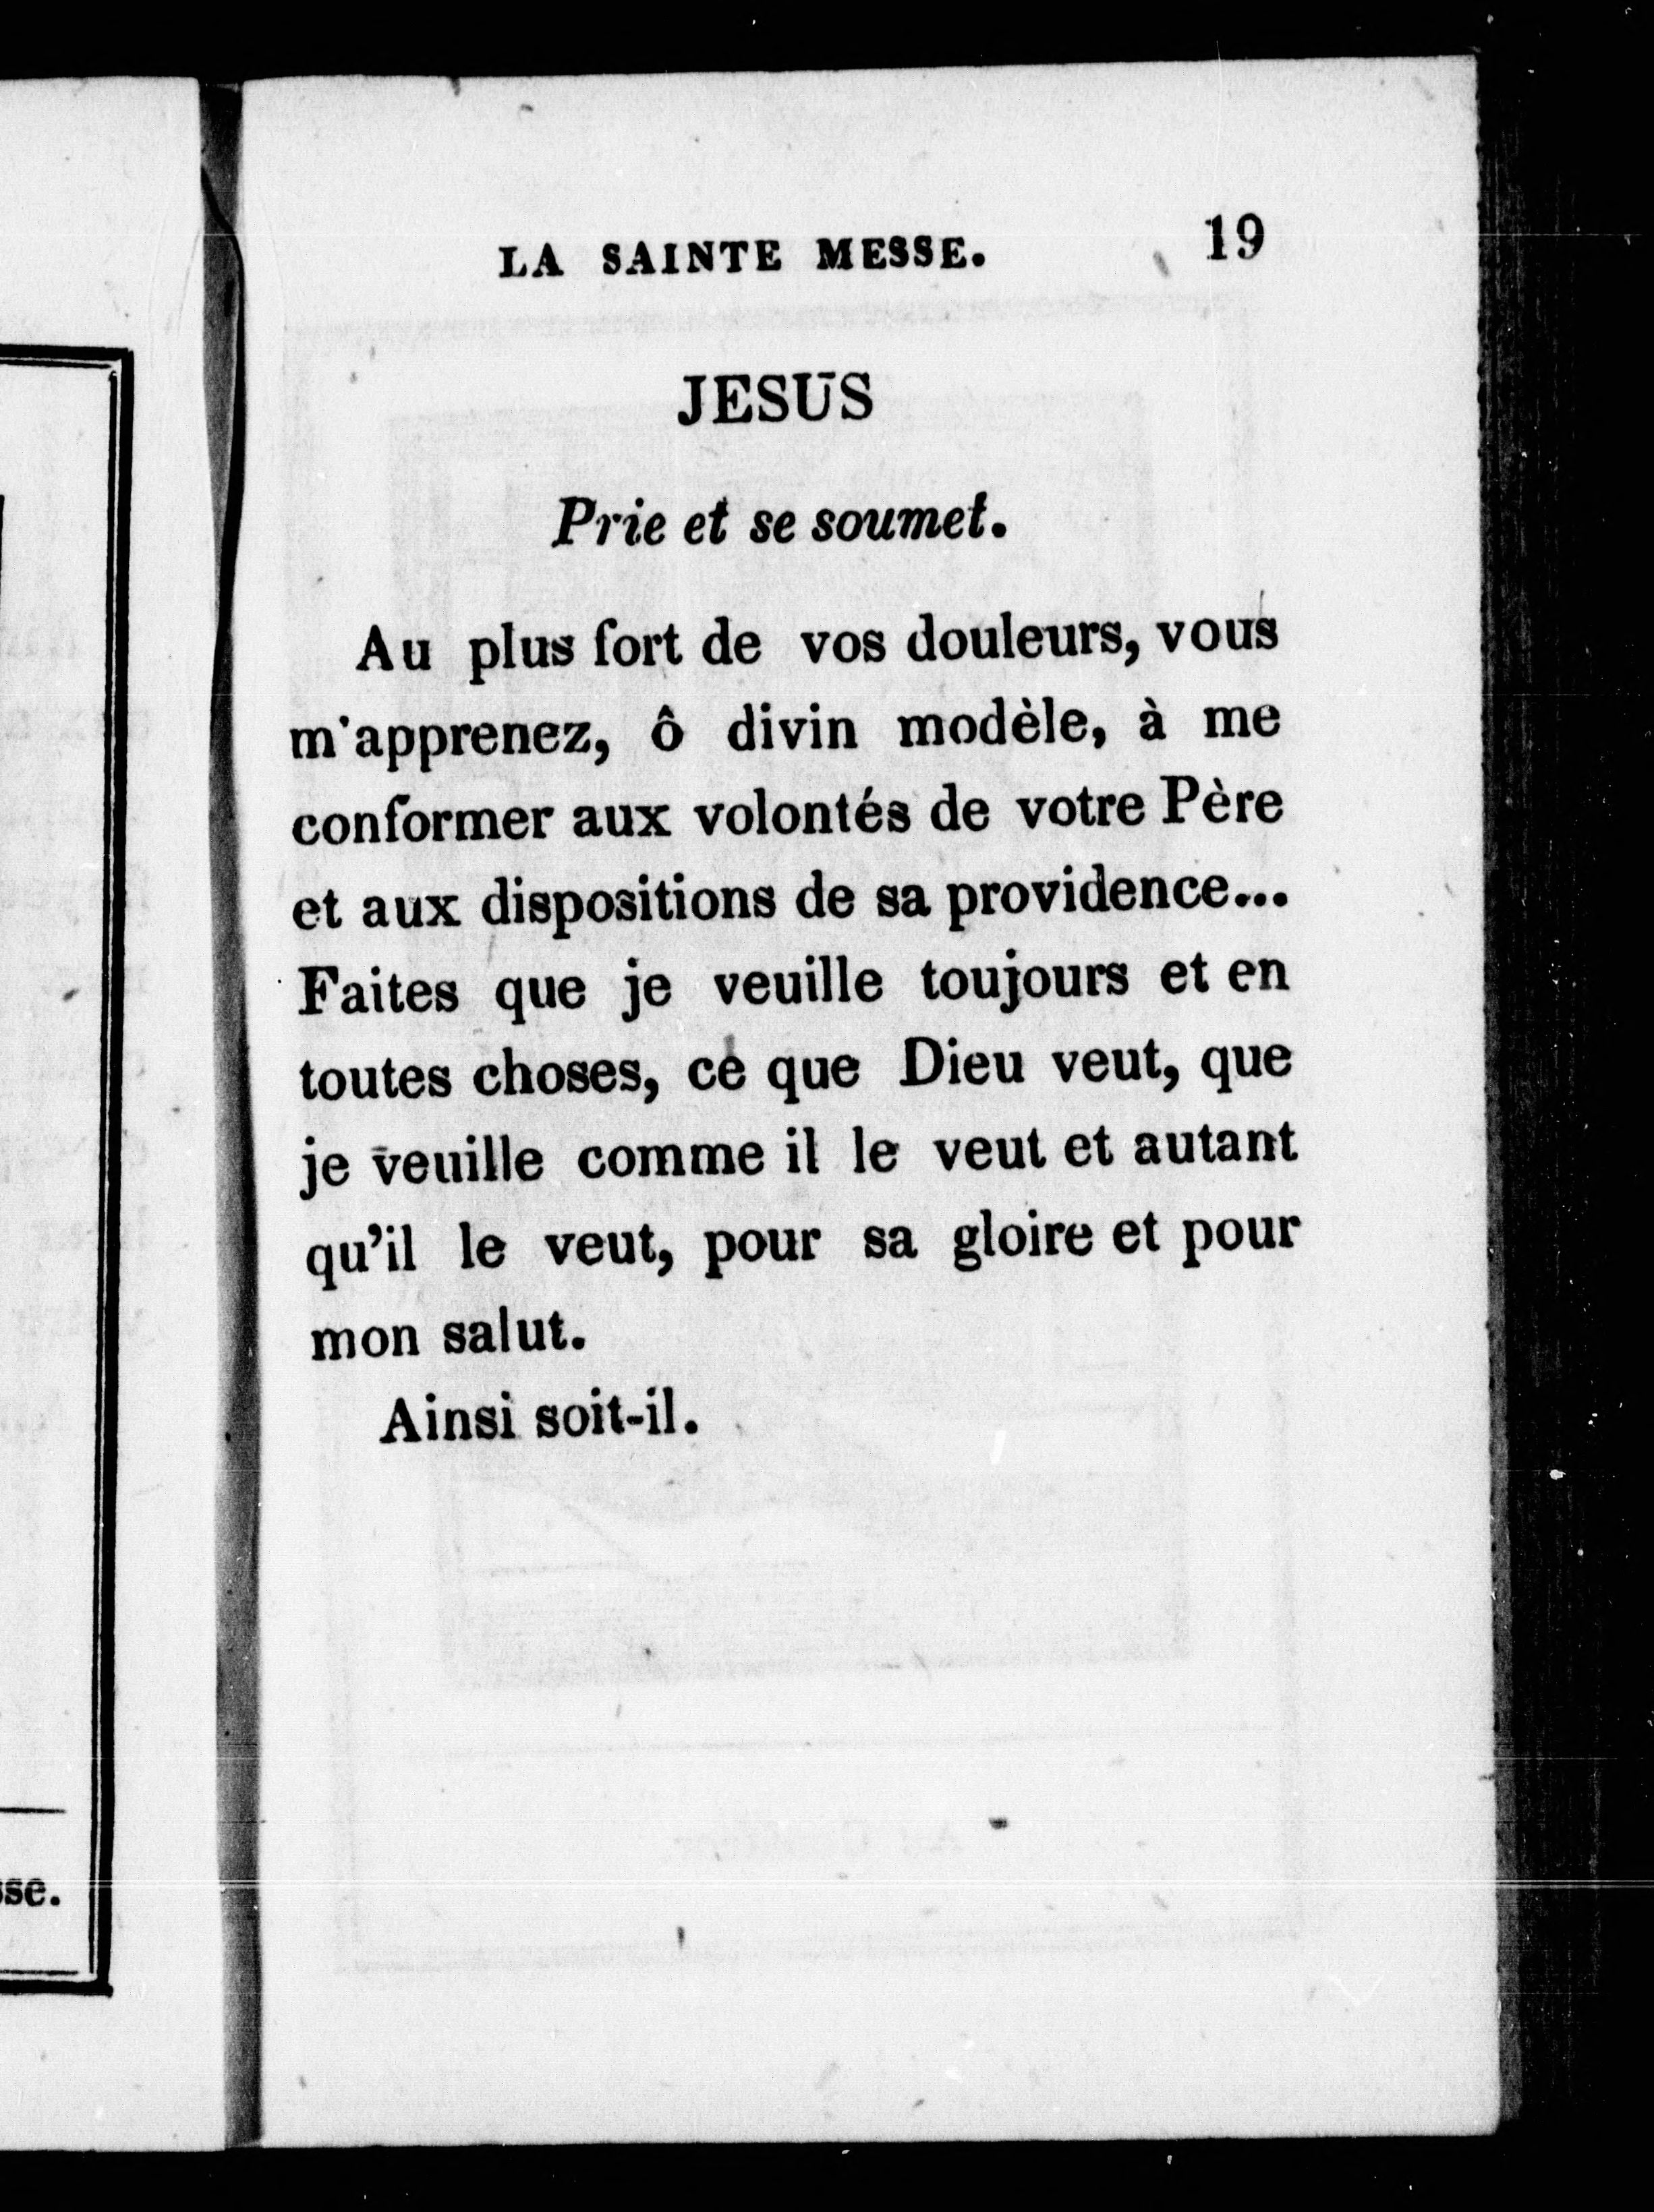 LA SAINTE MESSE. 19
JESUS
Prie et se soumet.
Au plus fort de vos douleurs, vous
m'apprenez, ô divin modèle, à me
conformer aux volontés de votre Père
et aux dispositions de sa providence...
Faites que je veuille toujours et en
toutes choses, ce que Dieu veut, que
je veuille comme il le veut et autant
qu'il le veut, pour sa gloire et pour
mon salut.
Ainsi soit-il.